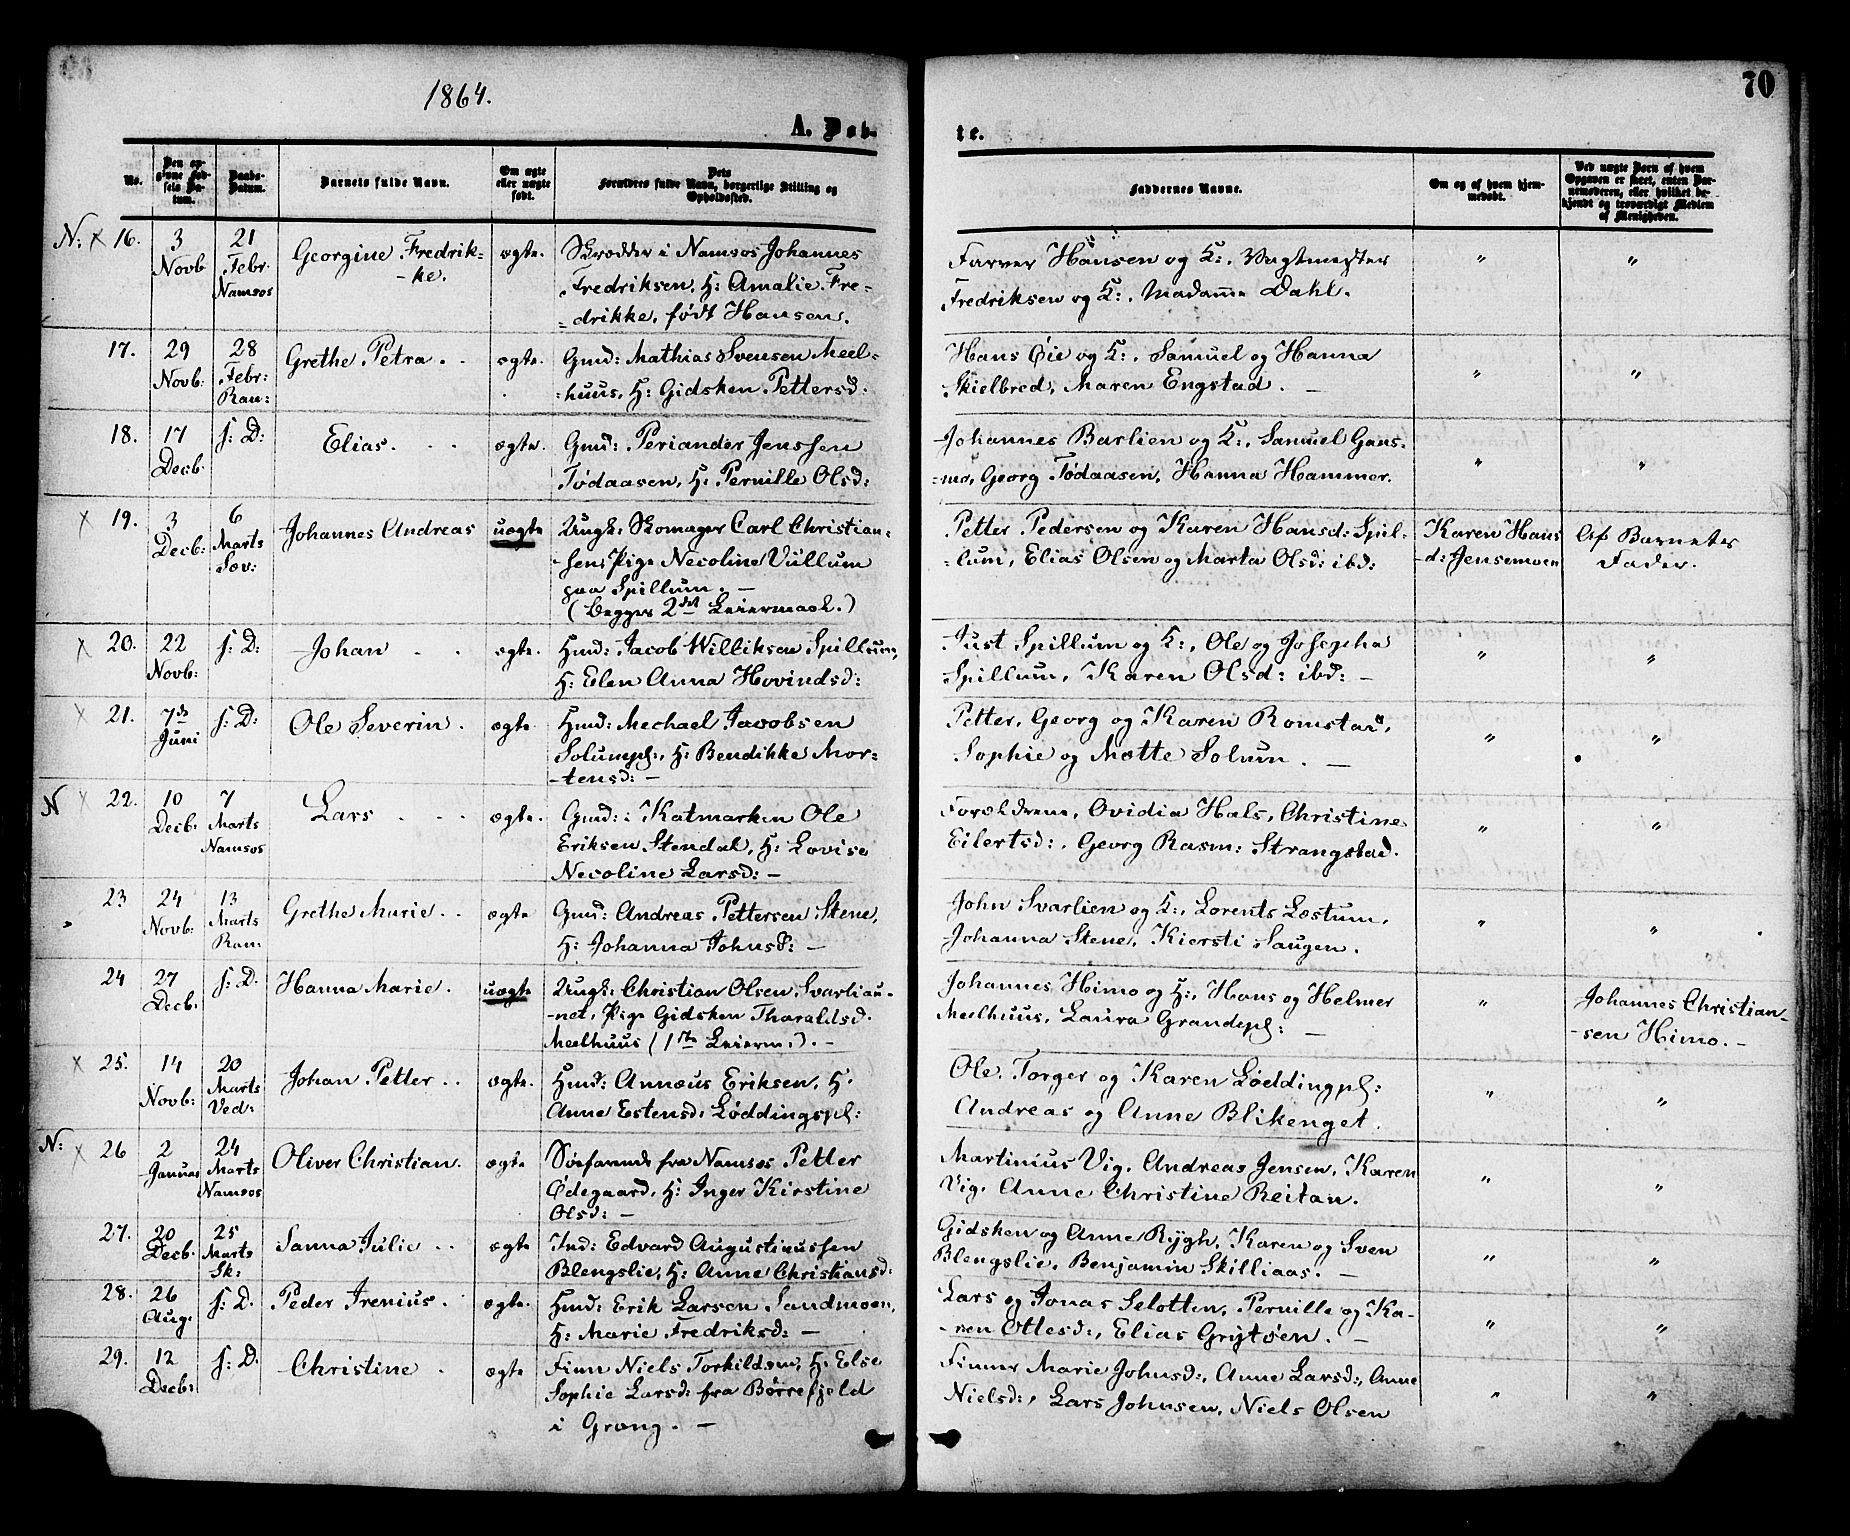 1864.
70
A. Døb-
te.
No.
Den opgivne Fødsels Datum.
Daabs-Datum.
Barnets fulde Navn.
Om ægte eller uægte født.
Dets Forældres fulde Navn, borgerlige Stilling og Opholdssted.
Faddernes Navne.
Om og af hvem hjemmedøbt.
Ved uægte Børn af hvem Opgaven er skeet, enten Barnemoderen, eller hvilket bekjendt og troværdigt Medlem af Menigheden.
N: x 16. 3 Novb 21 Febr. Namsos Georgine Fredrik-
-ke. ægte. Skrædder i Namsos Johannes
Fredriksen, H: Amalie Fre-
-drikke, født Hansen.
Farver Hansen og K:, Vagtmester
Fredriksen og K:, Madame Dahl. " "
17. 29 Novb: 28 Febr: Ran: Grethe Petra . . ægte. Gmd: Mathias Svensen Meel-
-huus, H: Gidsken Pettersd:
Hans Øie og K:, Samuel og Hanna
Skielbred, Maren Engstad. — " "
18. 17 Decb. s: D: Elias. . . ægte. Gmd: Periander Jenssen
Tødaasen, H: Pernille Olsd:
Johannes Barlien og K:, Samuel Gans-
-mo, Georg Tødaasen, Hanna Hammer. " "
x 19. 3 Decb: 6 Marts Sæv: Johannes Andreas uægte Ungk: Skomager Carl Christian-
-sen, Pige Necoline Vullum
paa Spillum. —
(Begges 2det Leiermaal.)
Petter Pedersen og Karen Hansd: Spil-
-lum, Elias Olsen og Marta Olsd: ibd:
Karen Hans
-d: Jensemoen
Af Barnets
Fader.
x 20. 22 Novb: s: D: Johan . . ægte. Hmd: Jacob Williksen Spillum,
H: Elen Anna Hovindsd:
Just Spillum og K:, Ole og Josepha
Spillum, Karen Olsd: ibd: — " "
x 21. 7de Juni s: D: Ole Severin. ægte. Hmd: Mechael Jacobsen
Solumpl:, H: Bendikke Mor-
-tensd: —
Petter, Georg og Karen Romstad,
Sophie og Mette Solum. — " "
N x 22. 10 Decb: 7 Marts Namsos Lars . . . ægte. Gmd: i Katmarken Ole
Eriksen Stendal, H: Lovise
Necoline Larsd: —
Forældrene, Ovidia Hals, Christine
Eilertsd:, Georg Rasm: Strangstad. " "
23 24 Novb: 13 Marts Ran: Grethe Marie . . ægte Gmd: Andreas Pettersen Stene,
H: Johanna Johnsd: —
John Svarlien og K:, Lorents Lostum,
Johanna Stene, Kiersti Saugen. " "
24 27 Decb: s: D. Hanna Marie. uægte Ungk: Christian Olsen Svarlian-
-net, Pige Gidsken Tharaldsd.
Meelhuus (1ste Leierm:). —
Johannes Himo og H:, Hans og Helmer
Meelhuus, Laura Grandepl: — "
Johannes Christian-
-sen Himo. —
x 25. 14 Novb: 20 Marts Ved: Johan Petter . . ægte. Hmd: Annæus Eriksen, H:
Anne Estensd: Løddingspl:
Ole, Torger og Karen Løddingpl:
Andreas og Anne Blikenget. " "
N: x 26 2 Januar 24 Marts Namsos Oliver Christian. ægte Søefarende fra Namsos Petter
Ødegaard, H: Inger Kirstine
Olsd: —
Martinius Vig, Andreas Jensen, Karen
Vig, Anne Christine Reitan. " "
27. 20 Decb. 25 Marts Sk: Sanna Julie . . ægte Ind: Edvard Augustinussen
Blengslie, H: Anne Christiansd:
Gidsken og Anne Rygh, Karen og Sven
Blengslie, Benjamin Skilliaas. — " "
28. 26 Aug: s: D. Peder Irenius. . ægte. Hmd: Erik Larsen Sandmoen,
H: Marie Fredriksd: —
Lars og Jonas Selotten, Pernille og Ka-
-ren Ottesd:, Elias Grytøen. — " "
29. 12 Decb: s: D. Christine . ægte Finn Niels Torkildsen, H: Else
Sophie Larsd: fra Børrefjeld
i Grong. —
Finner Marie Johnsd:, Anne Larsd:, Anne
Nielsd:, Lars Johnsen, Niels Olsen " "